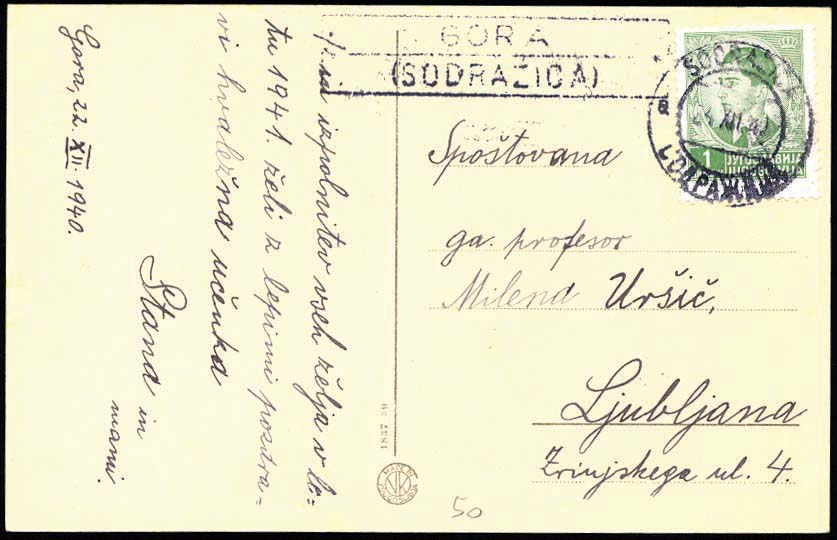 GORA
(SODRAŽICA)
SODRAŽICA
1
ЈУГОСЛАВИЈА
JUGOSLAVIJA
Spoštovana
ga. profesor
Milena Uršič,
Ljubljana
Zrinjskega ul. 4.
izpolnitev vseh želja v le-
tu 1941. želi z lepimi pozdra-
vi hvaležna učenka
Stana in
mami.
Gora, 22. XII. 1940.
1837 39
MADE IN
YUGOSLAVIA
50